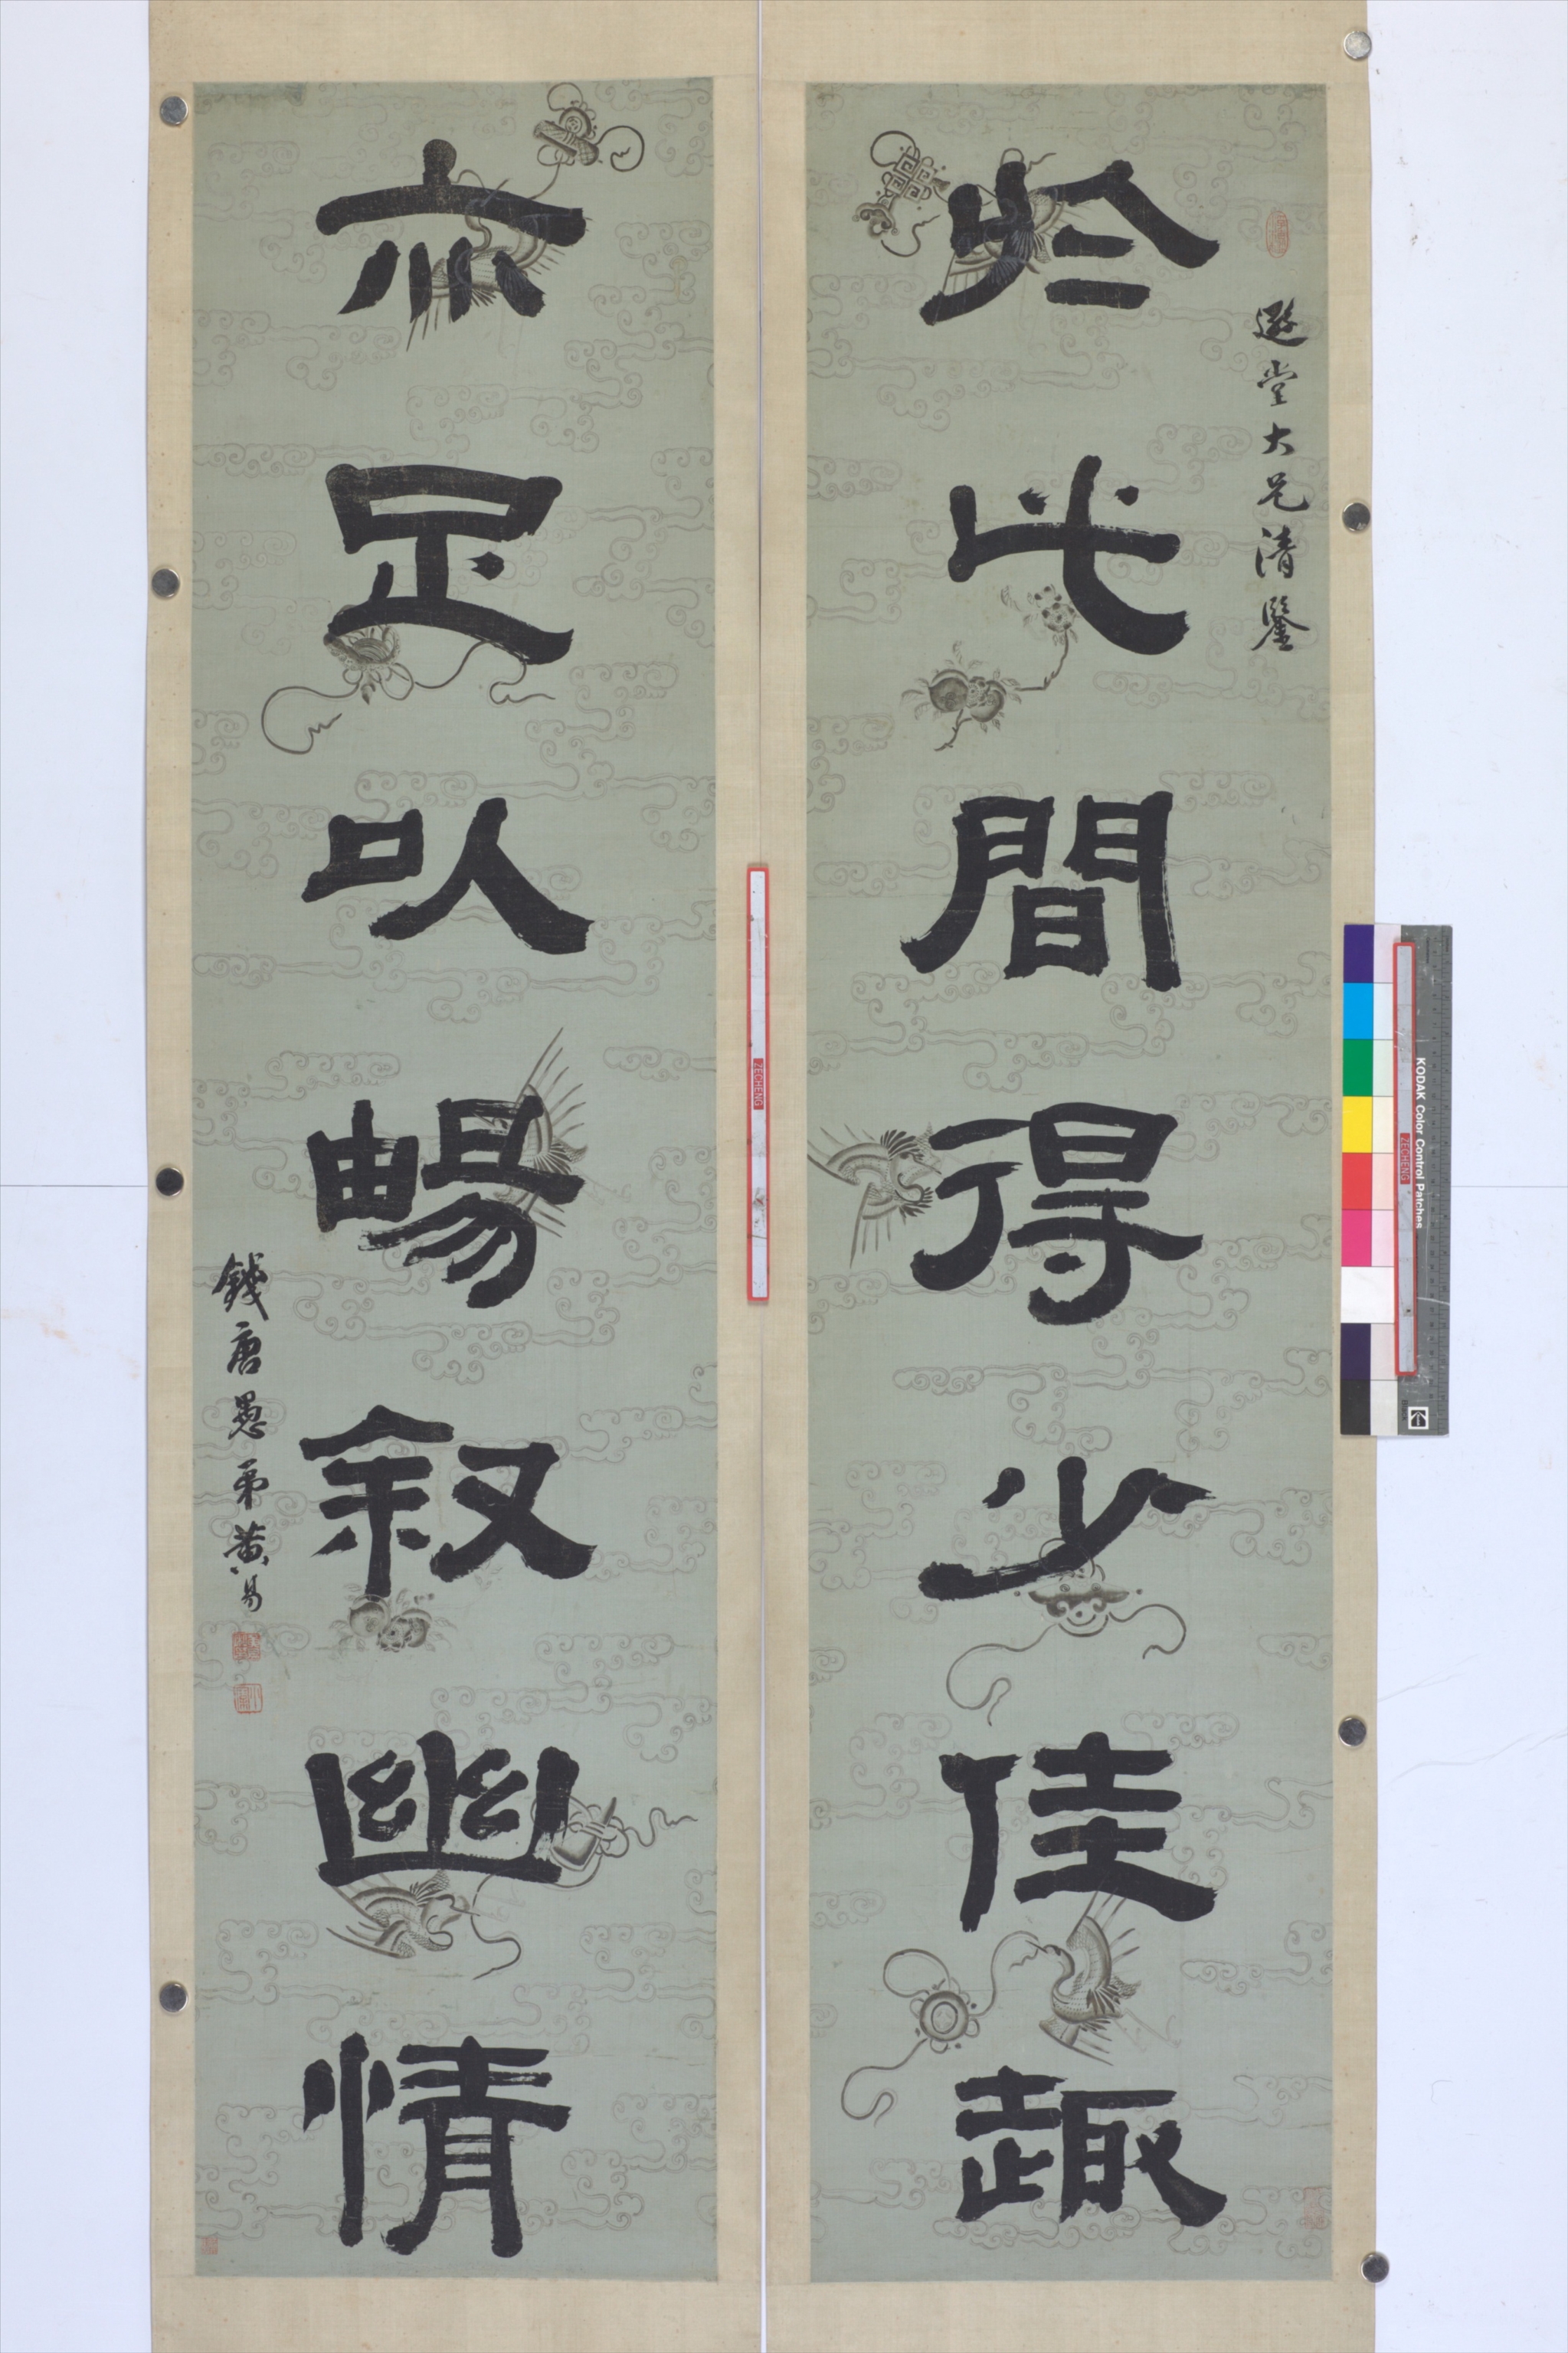 堂大兄清鑒
於此間得少佳趣
亦足以暢叙幽情
錢唐愚弟黃易
ZECHENG
KODAK Color Control Patches
ZECHENG